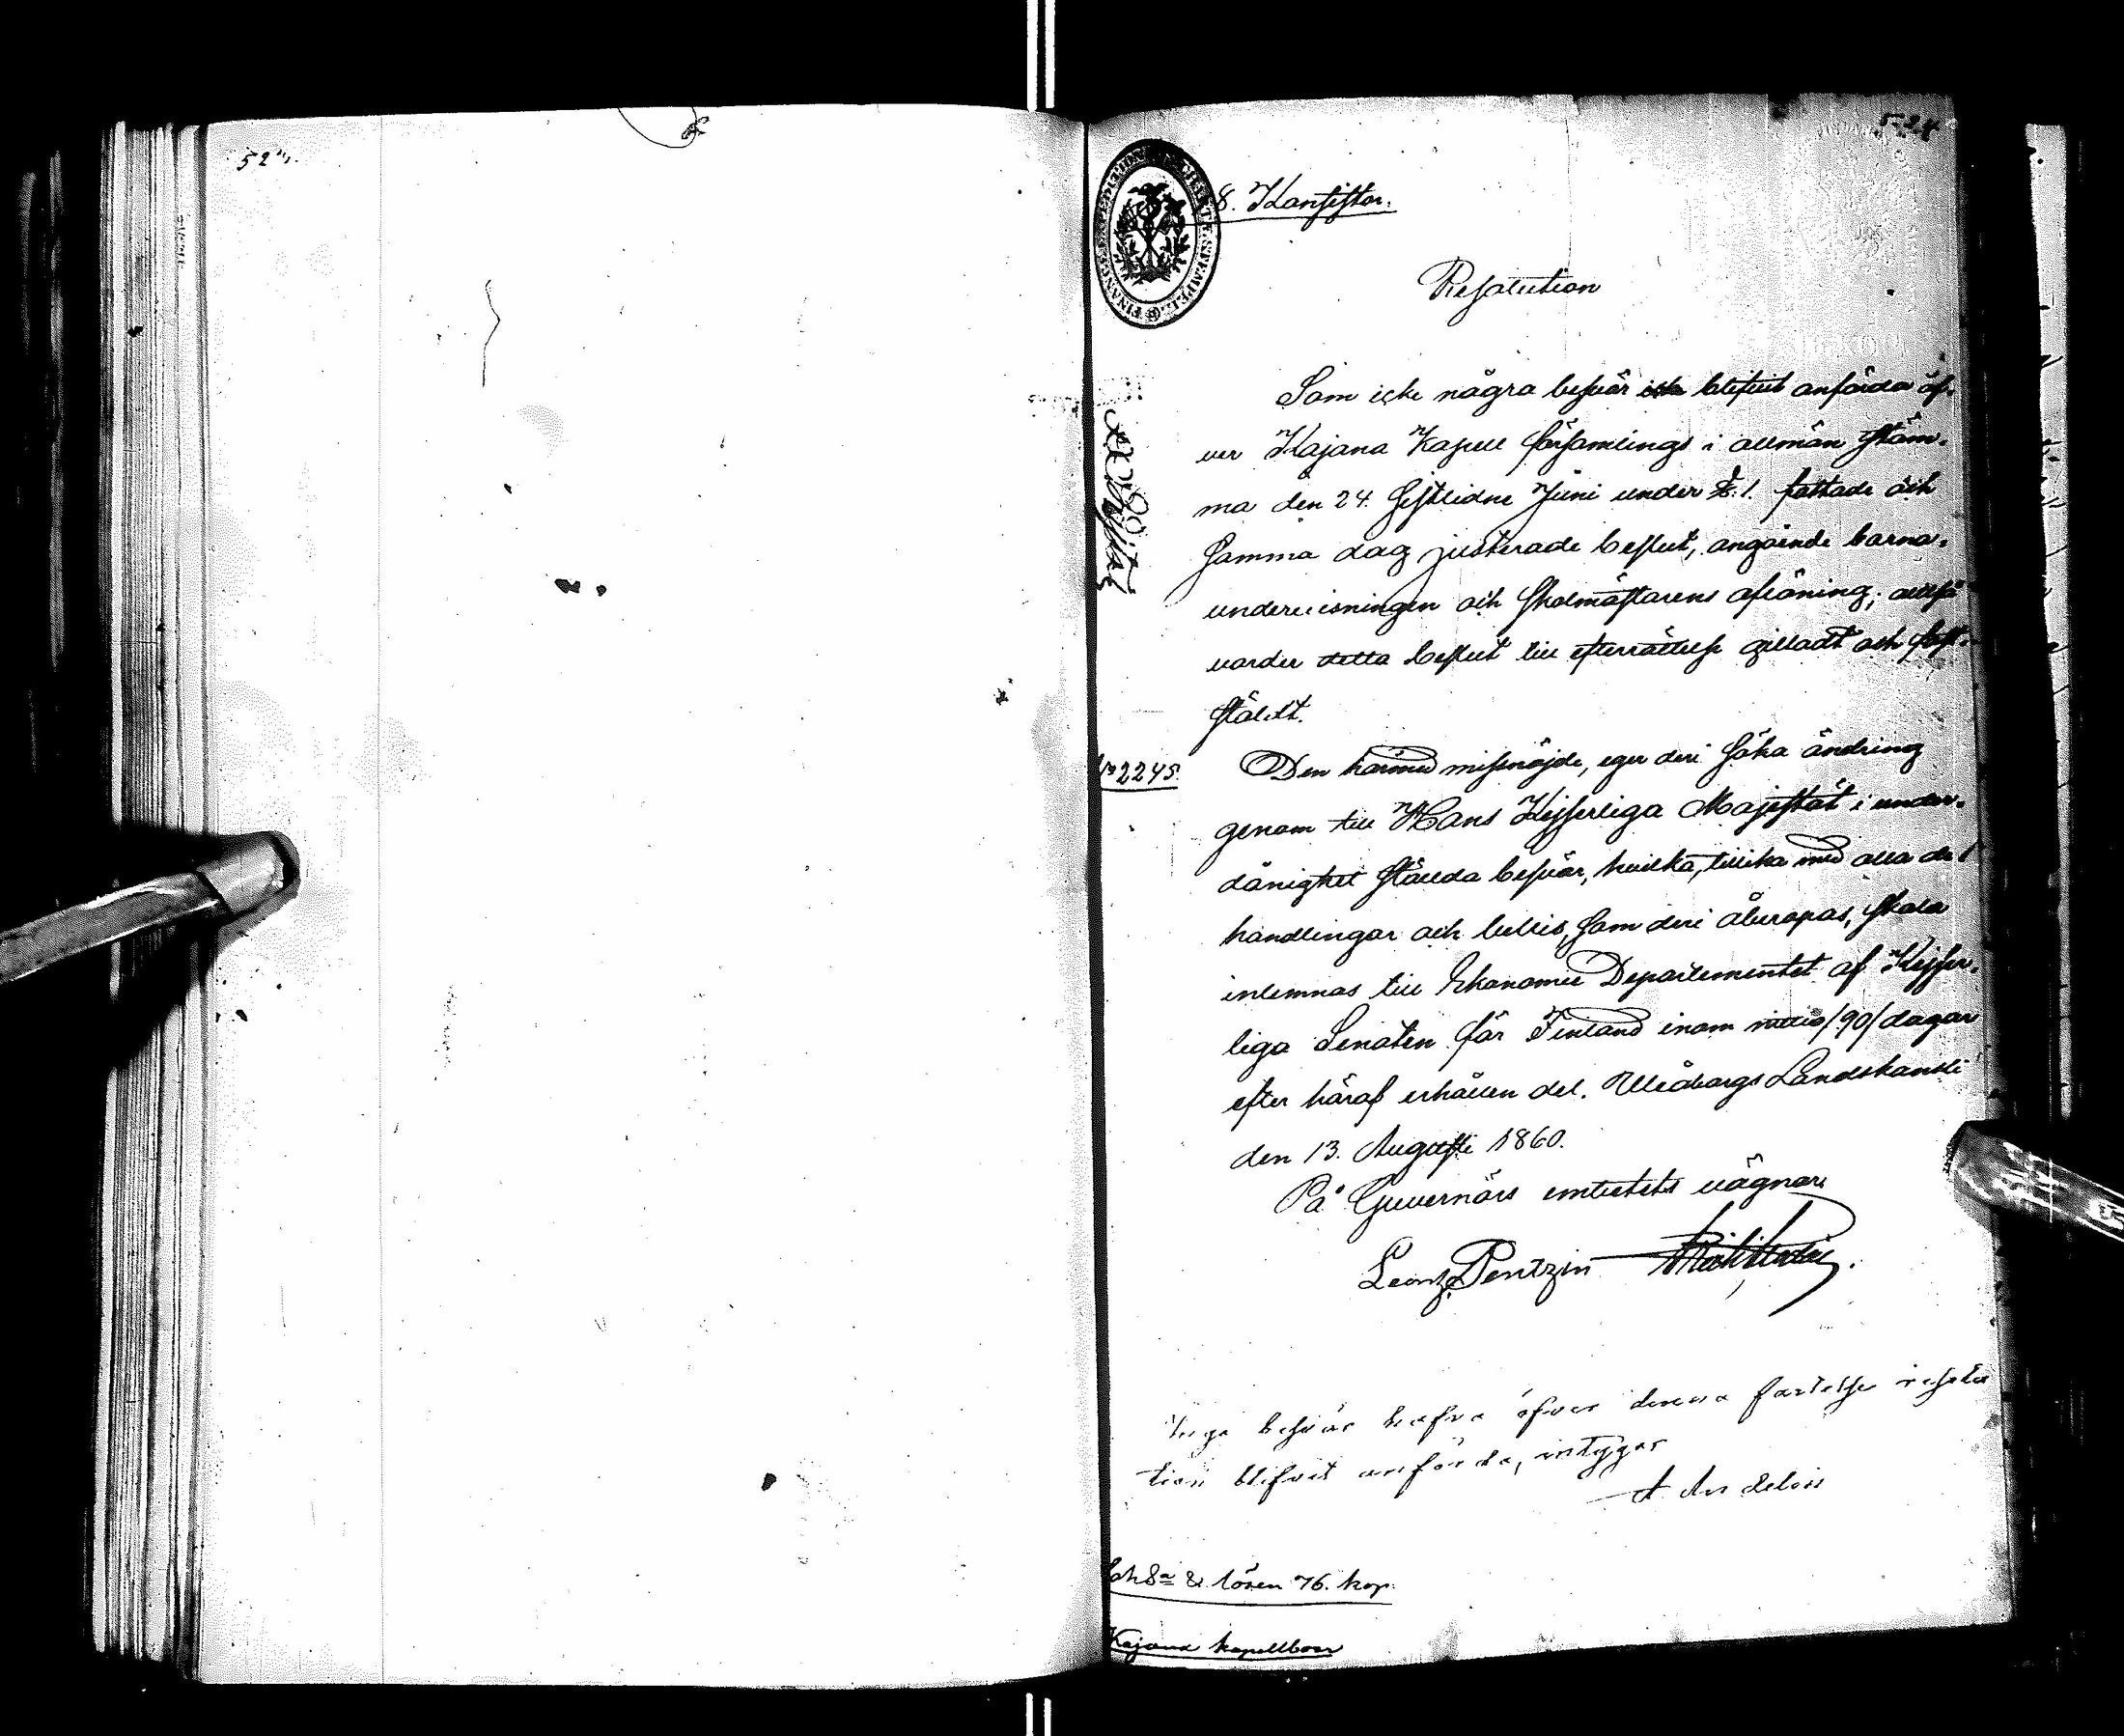 524.
8. Konsistor.
Resolution
Som icke några besvär blifvit anförda öf-
ver Kajana Kapell församlings i allmän stäm-
ma den 24. sistlidne Juni under §. 1. fattade och
samma dag justerade beslut, angående barna-
undervisningen och skolmästarens aflöning; alltså
varder detta beslut till efterrättelse gilladt och fast-
stäldt.
No 2245.
Den härmed missnöjde, eger deri söka ändring
genom till Hans Kejserliga Majestät i under-
dånighet stälda besvär, hvilka, tillika med alla de
handlingar och bevis, som deri åberopas, skola
inlemnas till Ekonomie Departementet af Kejser-
liga Senaten för Finland inom nittio /90/ dagar
efter häraf erhållen del. Uleåborgs Landskansli
den 13. Augusti 1860.
På Guvernörs embetets vägnar
Leon. Pentzin
Inga besvär hafva öfver denna resolu
tion blifvit anförda, intygar
A. Andelin
& lösen 76. kop.
Kajana kapellboer